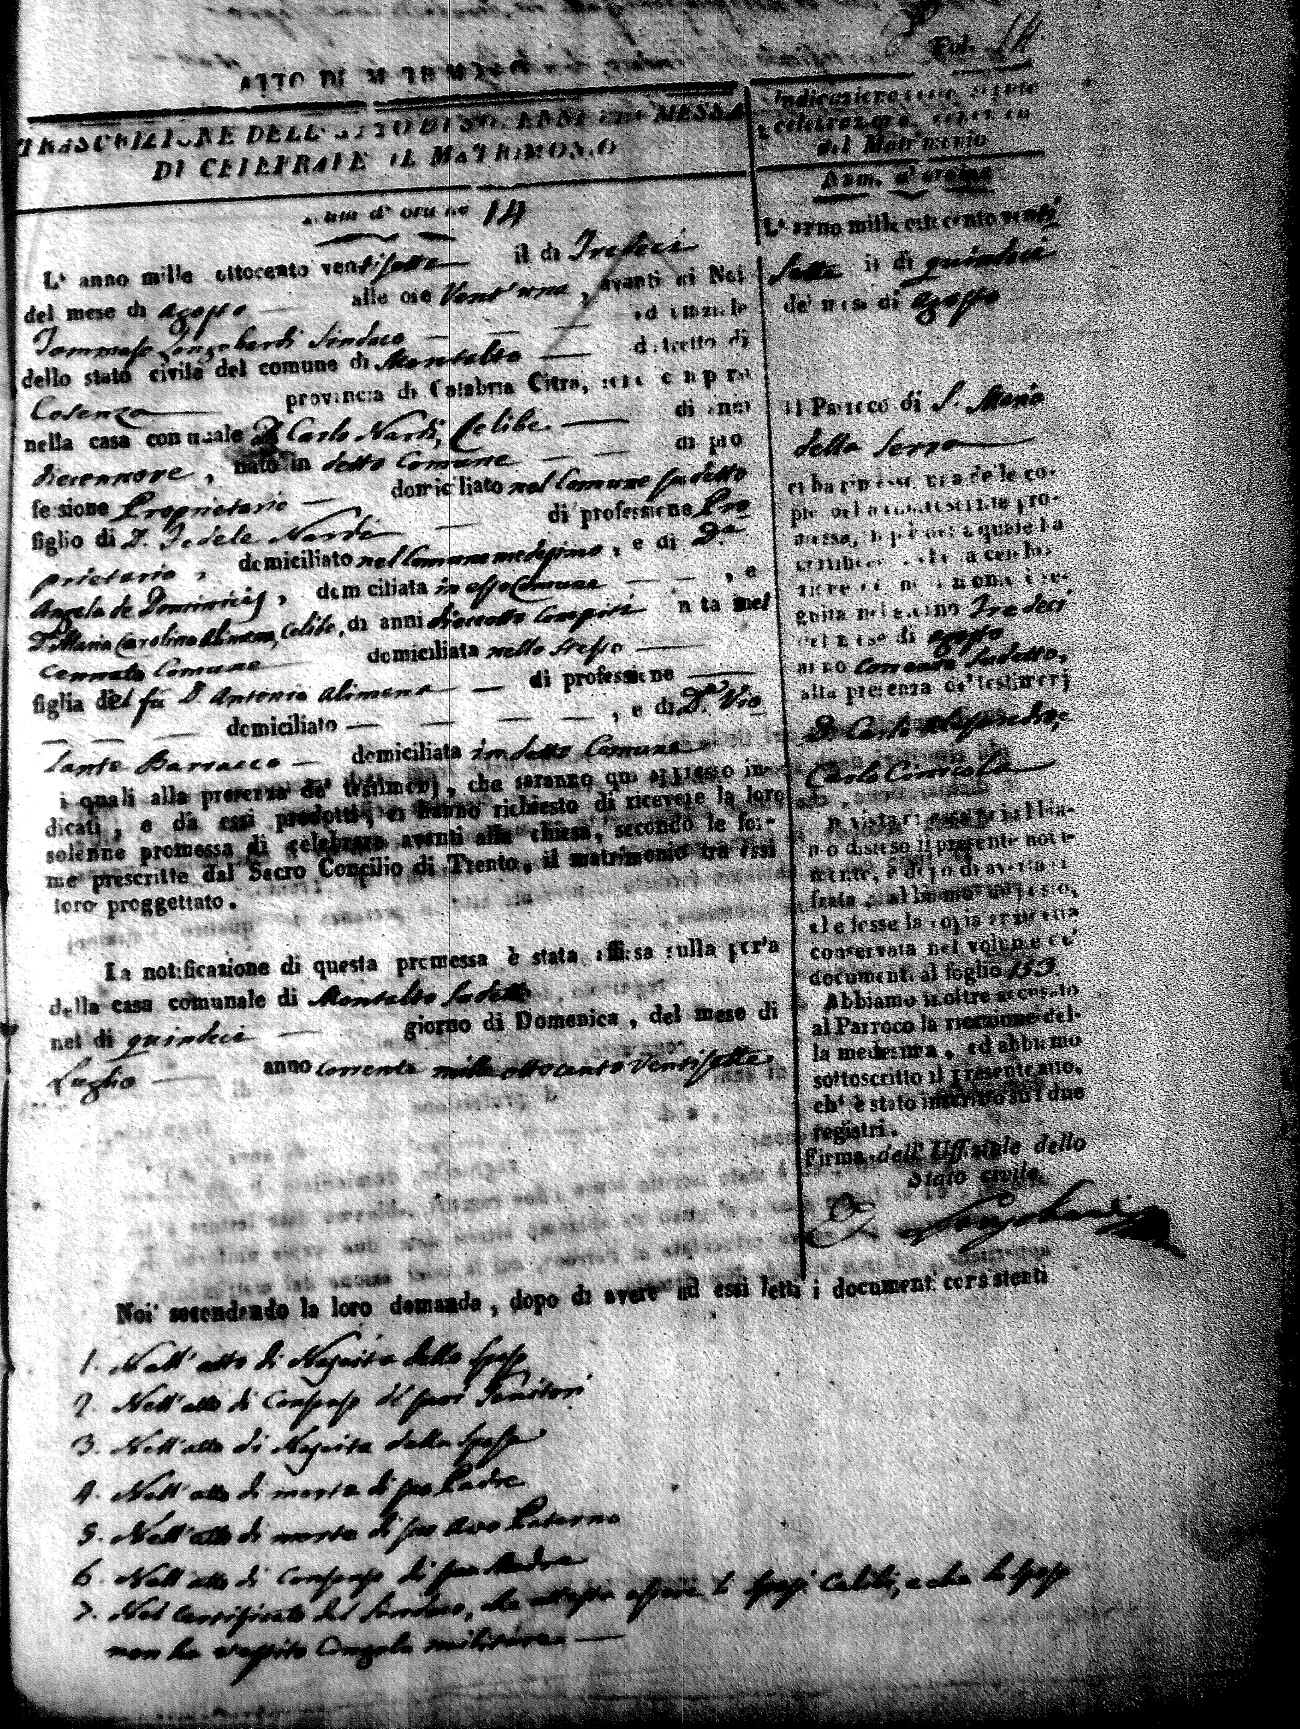 Fol. 14
ATTO DI MATRIMONIO
TRASCRIZIONE DELL' ATTO DI SOLENNE PROMESSA
DI CELEBRARE IL MATRIMONIO
Num. d' ordine 14
L' anno mille ottocento ventisette il dì Tredeci
del mese di Agosto alle ore Vent'una, avanti di Noi
Tommaso Longobardi Sindaco ed uffiziale
dello stato civile del comune di Montalto distretto di
Cosenza provincia di Calabria Citra, sono comparsi
nella casa comunale D. Carlo Nardi, Celibe di anni
diecennove, nato in detto Comune di pro
fessione Proprietario domiciliato nel Comune sudetto
figlio di D. Fedele Nardi di professione Pro
prietario, domiciliato nel Comune medesimo, e di D.a
Angela de Dominicis, domiciliata in esso Comune, e
D.a Maria Carolina Alimena, Celibe, di anni dieceotto compiti nata nel
cennato Comune domiciliata nello stesso
figlia del fù D. Antonio Alimena di professione
domiciliato , e di D.a Vio
lante Barracco domiciliata in detto Comune
i quali alla presenza de' testimonj, che saranno qui appresso in-
dicati, e da essi prodotti, ci hanno richiesto di ricevere la loro
solenne promessa di celebrare avanti alla chiesa, secondo le for-
me prescritte dal Sacro Concilio di Trento, il matrimonio tra essi
loro proggettato.
La notificazione di questa promessa è stata affissa sulla porta
della casa comunale di Montalto sudetto
nel dì quindeci giorno di Domenica, del mese di
Luglio anno corrente mille ottocento Ventisette
Indicazione della seguita
celebrazione canonica
del Matrimonio
Num. d' ordine
L' anno mille ottocento venti
sette il dì quindeci
del mese di Agosto
il Parroco di S. Maria
della Serra
ci ha rimessa una delle co-
pie della
messa, in piè della quale ha
seguita nel giorno Tredeci
del mese di Agosto
anno corrente sudetto,
alla presenza de' testimonj
D. Carlo
Carlo
In vista di essa abbia-
mo disteso il presente noti-
mento, e dopo di averla ci-
frata, abbiamo disposto,
che fosse la copia anzidetta
conservata nel volume de'
documenti al foglio 153
Abbiamo inoltre accusato
al Parroco la ricezione del-
la medesima, ed abbiamo
sottoscritto il presente atto,
ch' è stato inscritto sui due
registri.
Firma dell' Uffiziale dello
Stato civile.
Longobardi
Noi secondando la loro domanda, dopo di avere ad essi letti i documenti consistenti
1. Nell' atto di Nascita dello Sposo
2. Nell' atto di Consenso de' suoi Genitori
3. Nell' atto di Nascita della Sposa
4. Nell' atto di morte di suo Padre
5. Nell' atto di morte di suo Avo Paterno
6. Nell' atto di Consenso di sua Madre
7. Nel Certificato del Sindaco, che attesta essere li Sposi Celibi, e che lo Sposo
non ha avuto Congedo militare